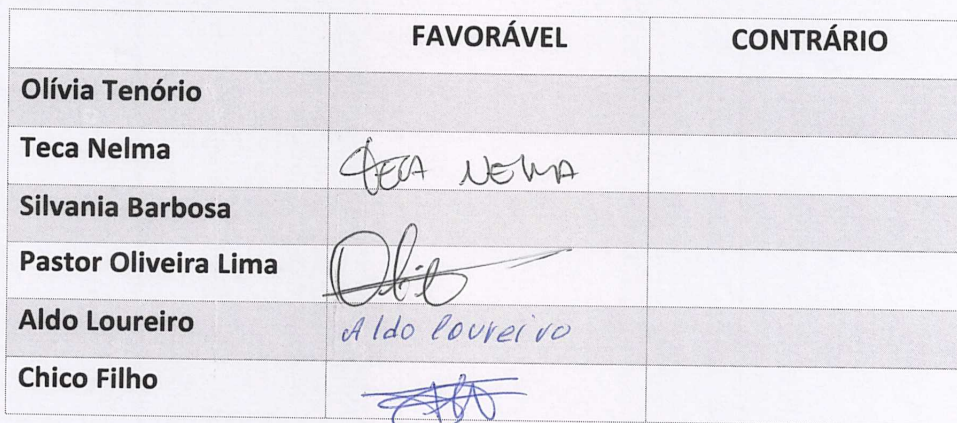 FAVORÁVEL CONTRÁRIO
Olívia Tenório
Teca Nelma TECA NELMA
Silvania Barbosa
Pastor Oliveira Lima
Aldo Loureiro Aldo Loureiro
Chico Filho